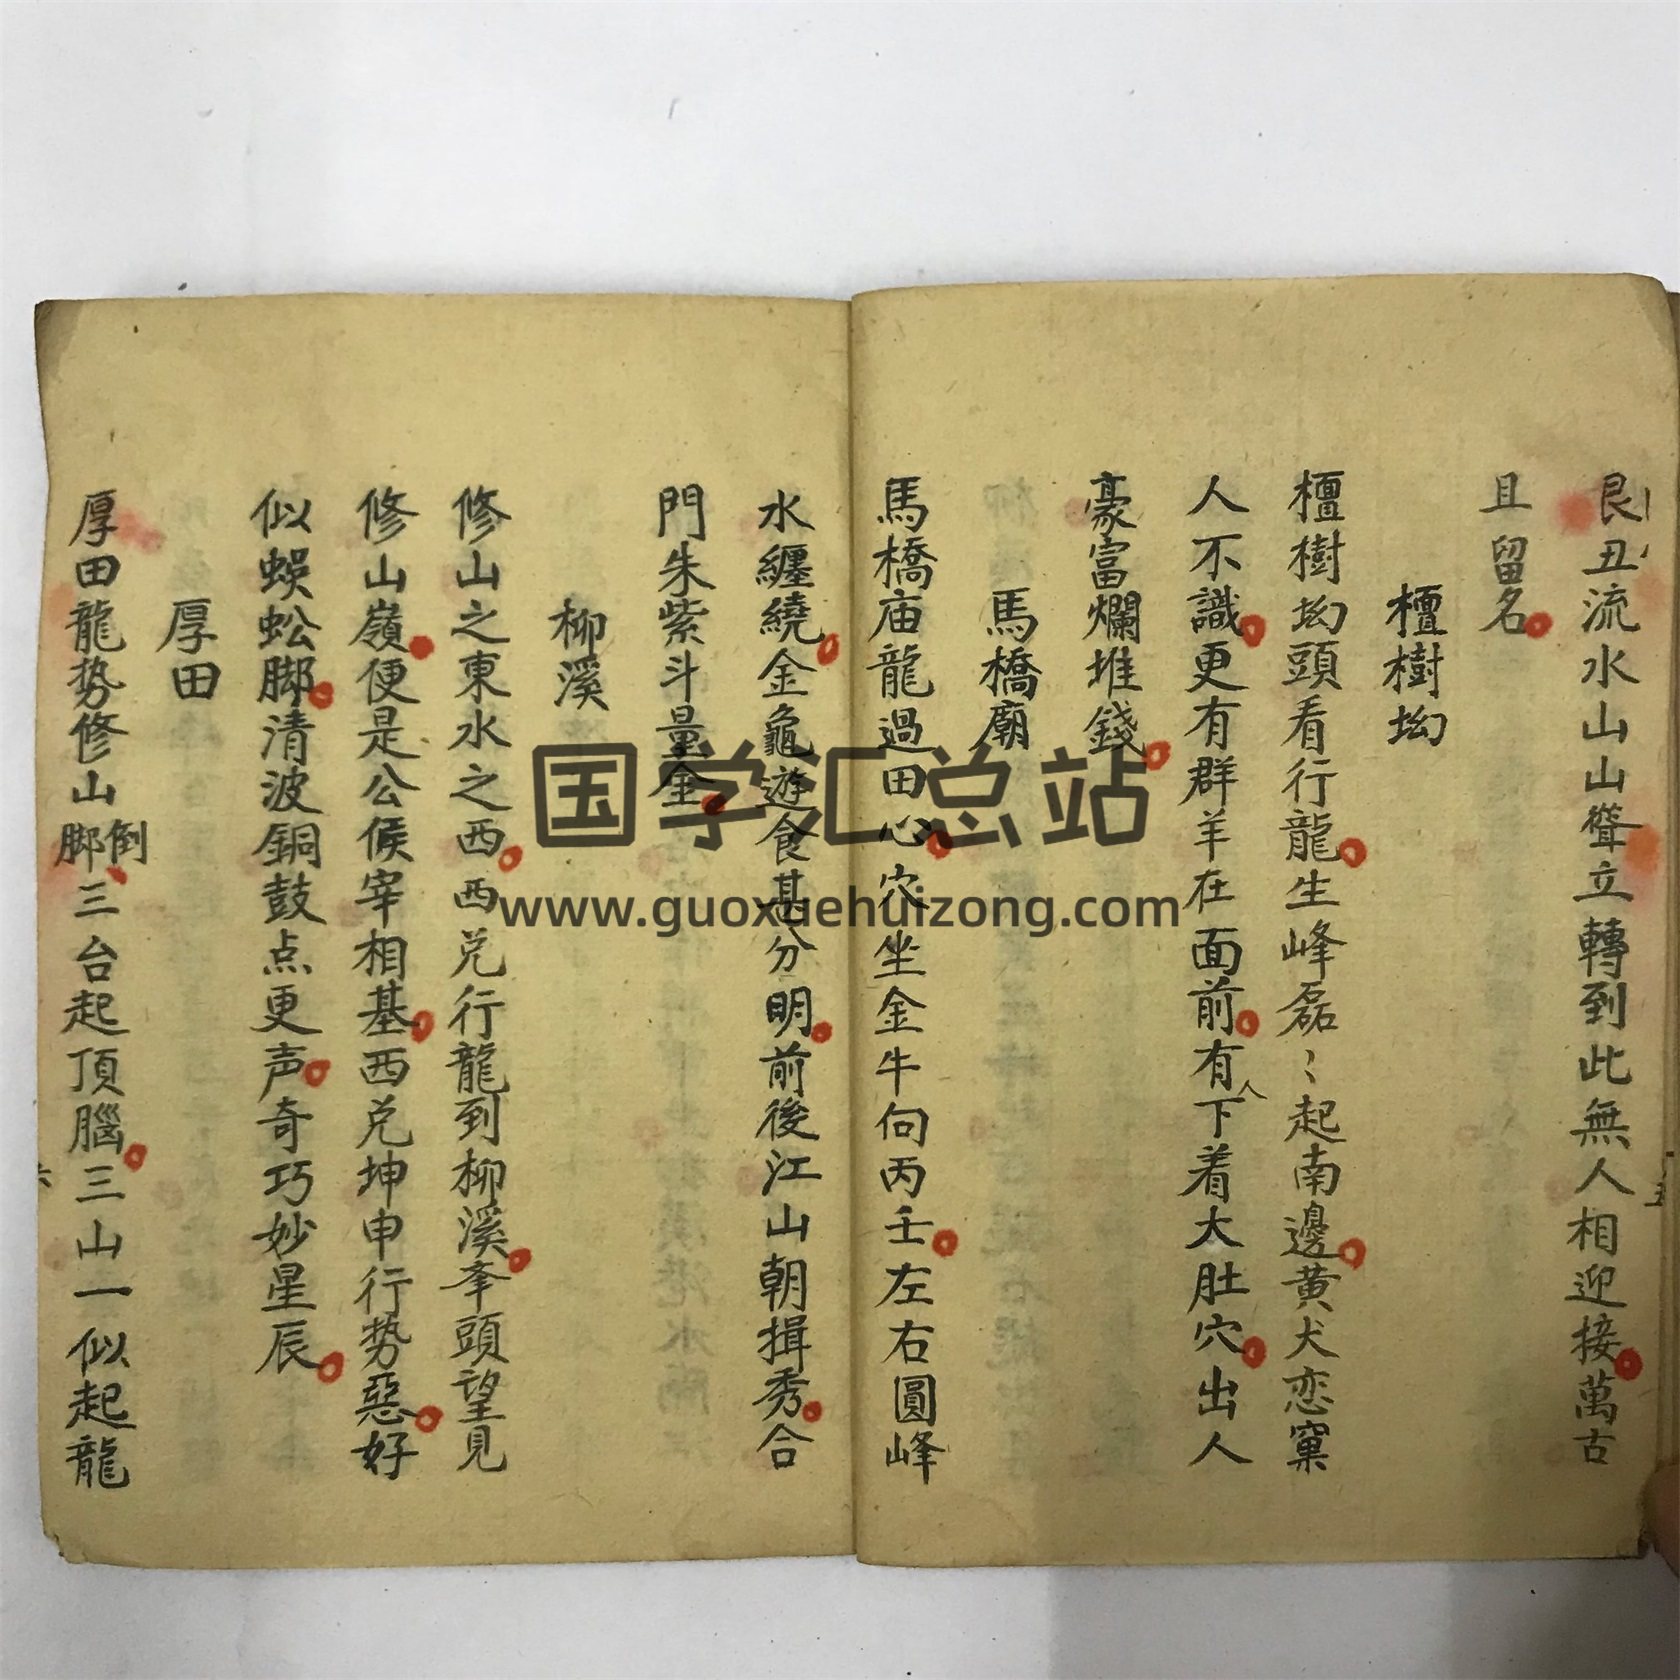 艮丑流水山山聳立轉到此無人相迎接萬古
且留名
檀樹坳
檀樹坳頭看行龍生峰磊〻起南邊黄犬恋窠
人不識更有群羊在面前有人下着大肚穴出人
豪富爛堆錢
馬橋廟
馬橋庙龍過田心穴坐金牛向丙壬左右圓峰
水纏繞金龜遊食甚分明前後江山朝揖秀合
門朱紫斗量金
柳溪
修山之東水之西西兑行龍到柳溪夆頭望見
修山嶺便是公候宰相基西兑坤申行势惡好
似蜈蚣脚清波銅鼓点更声奇巧妙星辰
厚田
厚田龍势修山倒脚三台起頂腦三山一似起龍
国学汇总站
www.guoxuehuizong.com